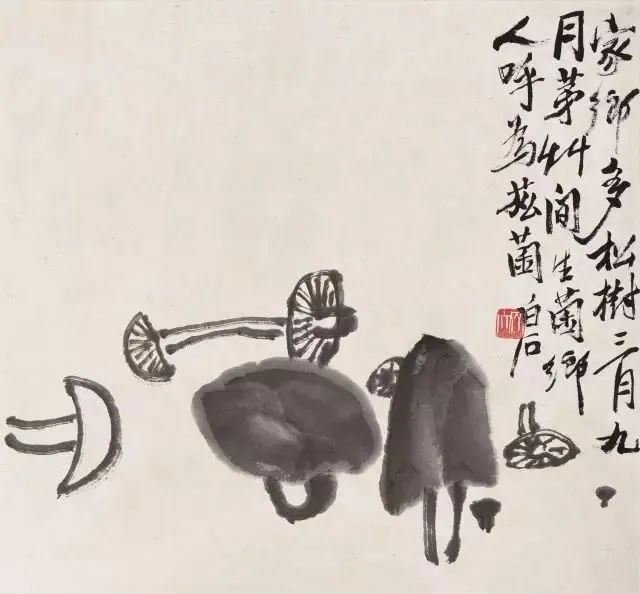 家鄉多松樹三月九
月茅艸間生菌鄉
人呼為菰菌
白石